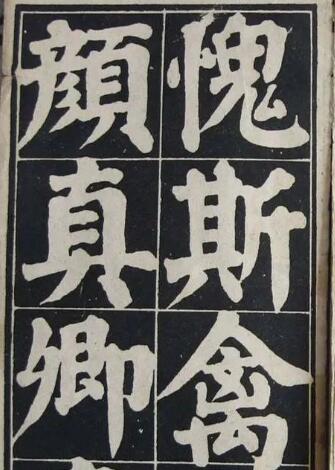 愧斯禽
顏真卿